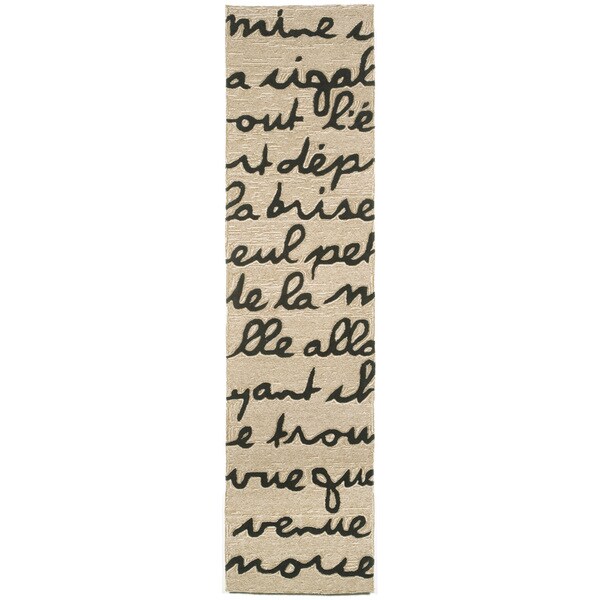 mine s
a sigal
out l'é
rt dép
la brise
eul pet
de la m
lle allo
yant ib
e trou
vue que
venue
noue